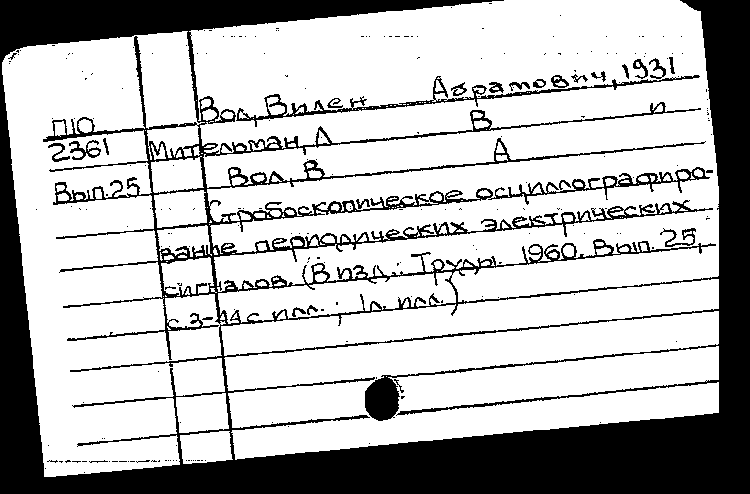 Вол, Вилен Абрамович, 1931
П10
2361 Мительман, Л В и
Вып.25 Вол, В А
Стробоскопическое осциллографиро-
вание периодических электрических
сигналов. (В изд.: Труды. 1960. Вып. 25,
с 3-44 с илл.; 1 л. илл.)